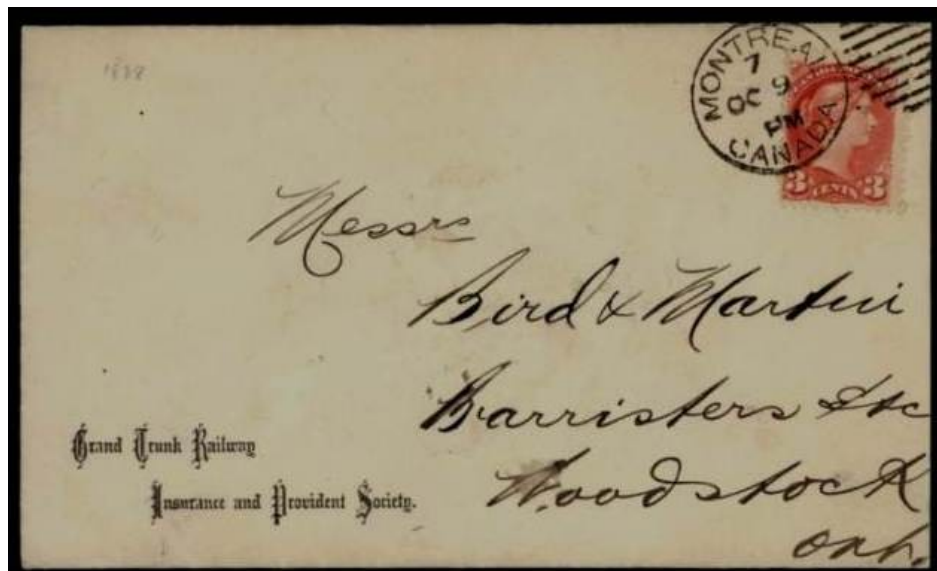 1888
MONTREAL
7
OC 9
PM
CANADA
3 CENTS 3
Messrs
Bird & Martin
Barristers &tc
Woodstock
Ont.
Grand Trunk Railway
Insurance and Provident Society.